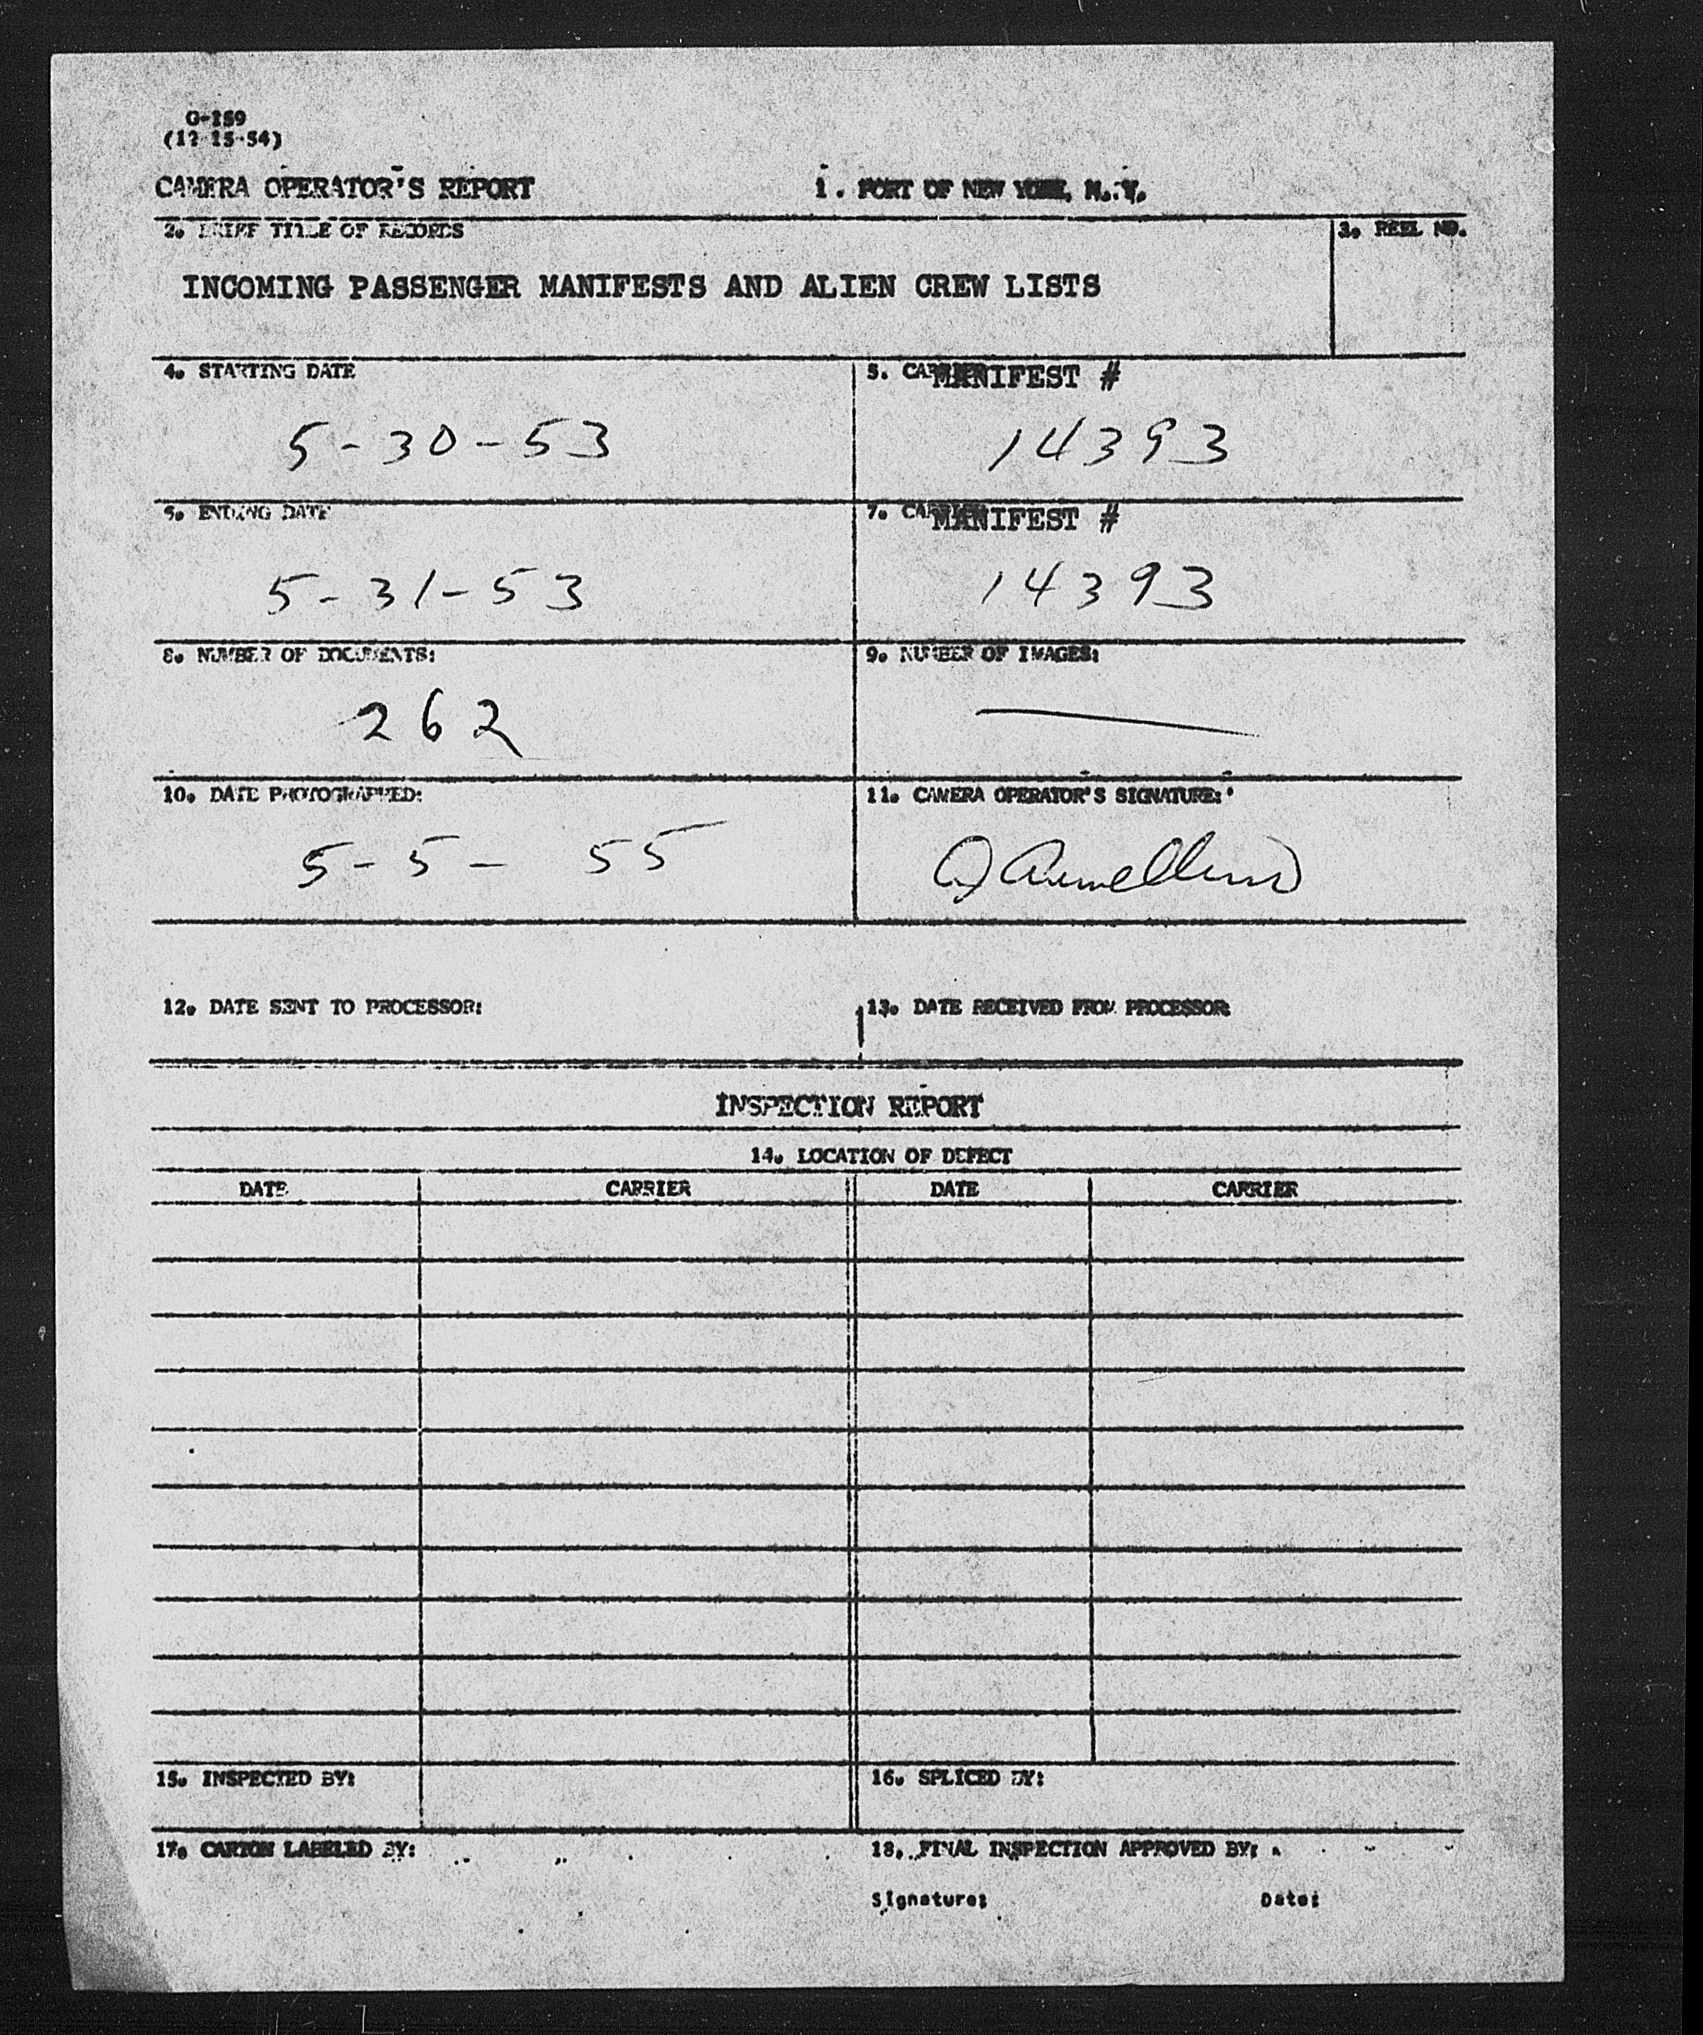 G-159
(12-15-54)
CAMERA OPERATOR'S REPORT 1. PORT OF NEW YORK, N.Y.
2. BRIEF TITLE OF RECORDS 3. REEL NO.
INCOMING PASSENGER MANIFESTS AND ALIEN CREW LISTS
4. STARTING DATE 5. CARRIER MANIFEST #
5-30-53 14393
6. ENDING DATE 7. CARRIER MANIFEST #
5-31-53 14393
8. NUMBER OF DOCUMENTS: 9. NUMBER OF IMAGES:
262 —
10. DATE PHOTOGRAPHED: 11. CAMERA OPERATOR'S SIGNATURE:
5-5-55
12. DATE SENT TO PROCESSOR: 13. DATE RECEIVED FROM PROCESSOR
INSPECTION REPORT
14. LOCATION OF DEFECT
DATE CARRIER DATE CARRIER
15. INSPECTED BY: 16. SPLICED BY:
17. CARTON LABELED BY: 18. FINAL INSPECTION APPROVED BY:
Signature: Date: